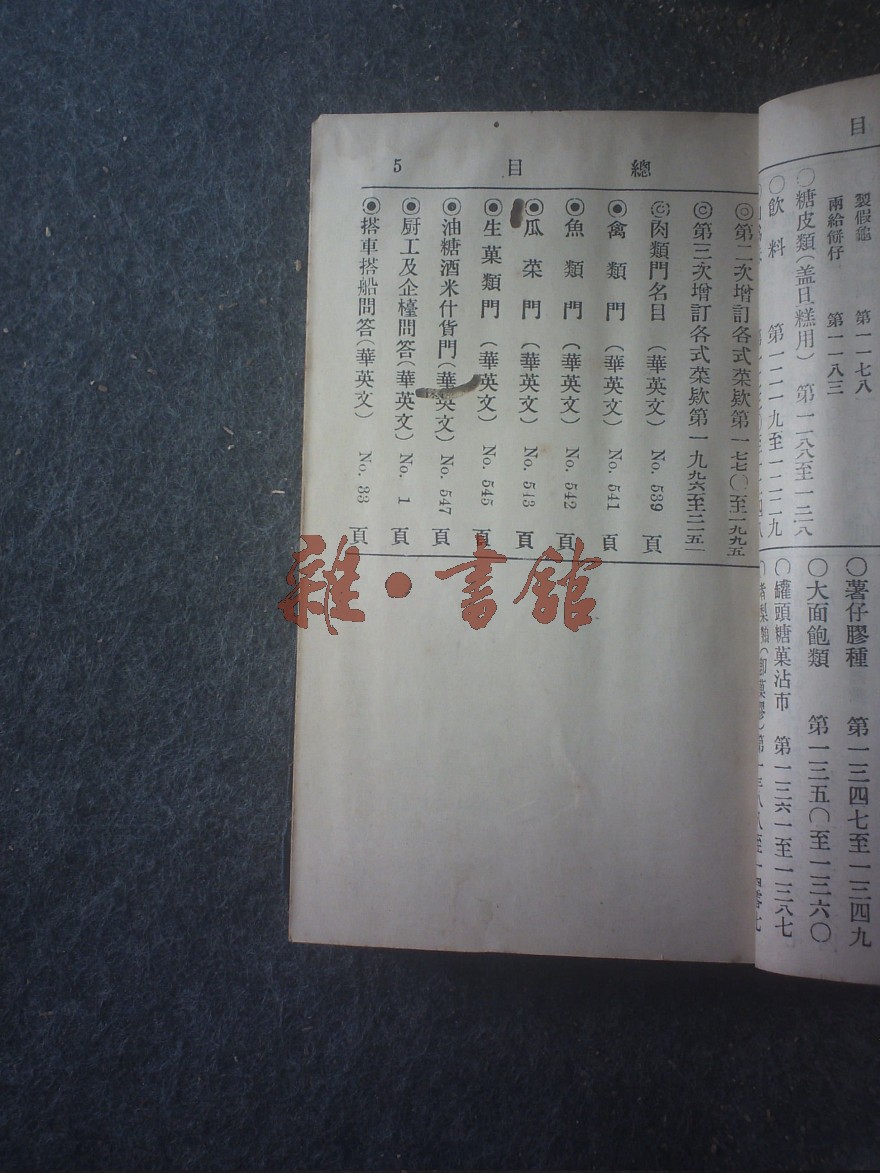 目
製假龜 第一一七八
兩給餅仔 第一一八三
〇糖皮類(盖旦糕用) 第一一八八至一二一八
〇飲料 第一二一九至一二二九
〇薯仔膠種 第一三四七至一三四九
〇大面飽類 第一三五〇至一三六〇
〇罐頭糖菓沾市 第一三六一至一三八七
總目 5
◎第二次增訂各式菜欵第一七七〇至一九九五
◎第三次增訂各式菜欵第一九九六至二一五一
◎肉類門名目(華英文) No. 539 頁
◉禽類門(華英文) No. 541 頁
◉魚類門(華英文) No. 542 頁
◉瓜菜門(華英文) No. 543 頁
◉生菓類門(華英文) No. 545 頁
◉油糖酒米什貨門(華英文) No. 547 頁
◉厨工及企檯問答(華英文) No. 1 頁
◉搭車搭船問答(華英文) No. 33 頁
雜·書館